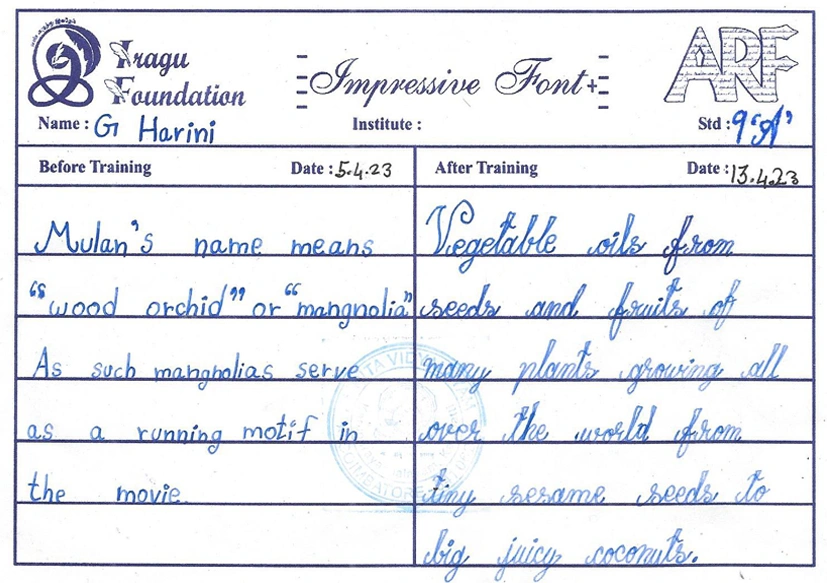 Iragu
Foundation
Impressive Font
ARF
Name : G Harini
Institute :
Std : 9 'A'
Before Training
Date : 5.4.23
Mulan's name means
"wood orchid" or "mangnolia"
As such mangnolias serve
as a running motif in
the movie.
After Training
Date : 13.4.23
Vegetable oils from
seeds and fruits of
many plants growing all
over the world from
tiny sesame seeds to
big juicy coconuts.